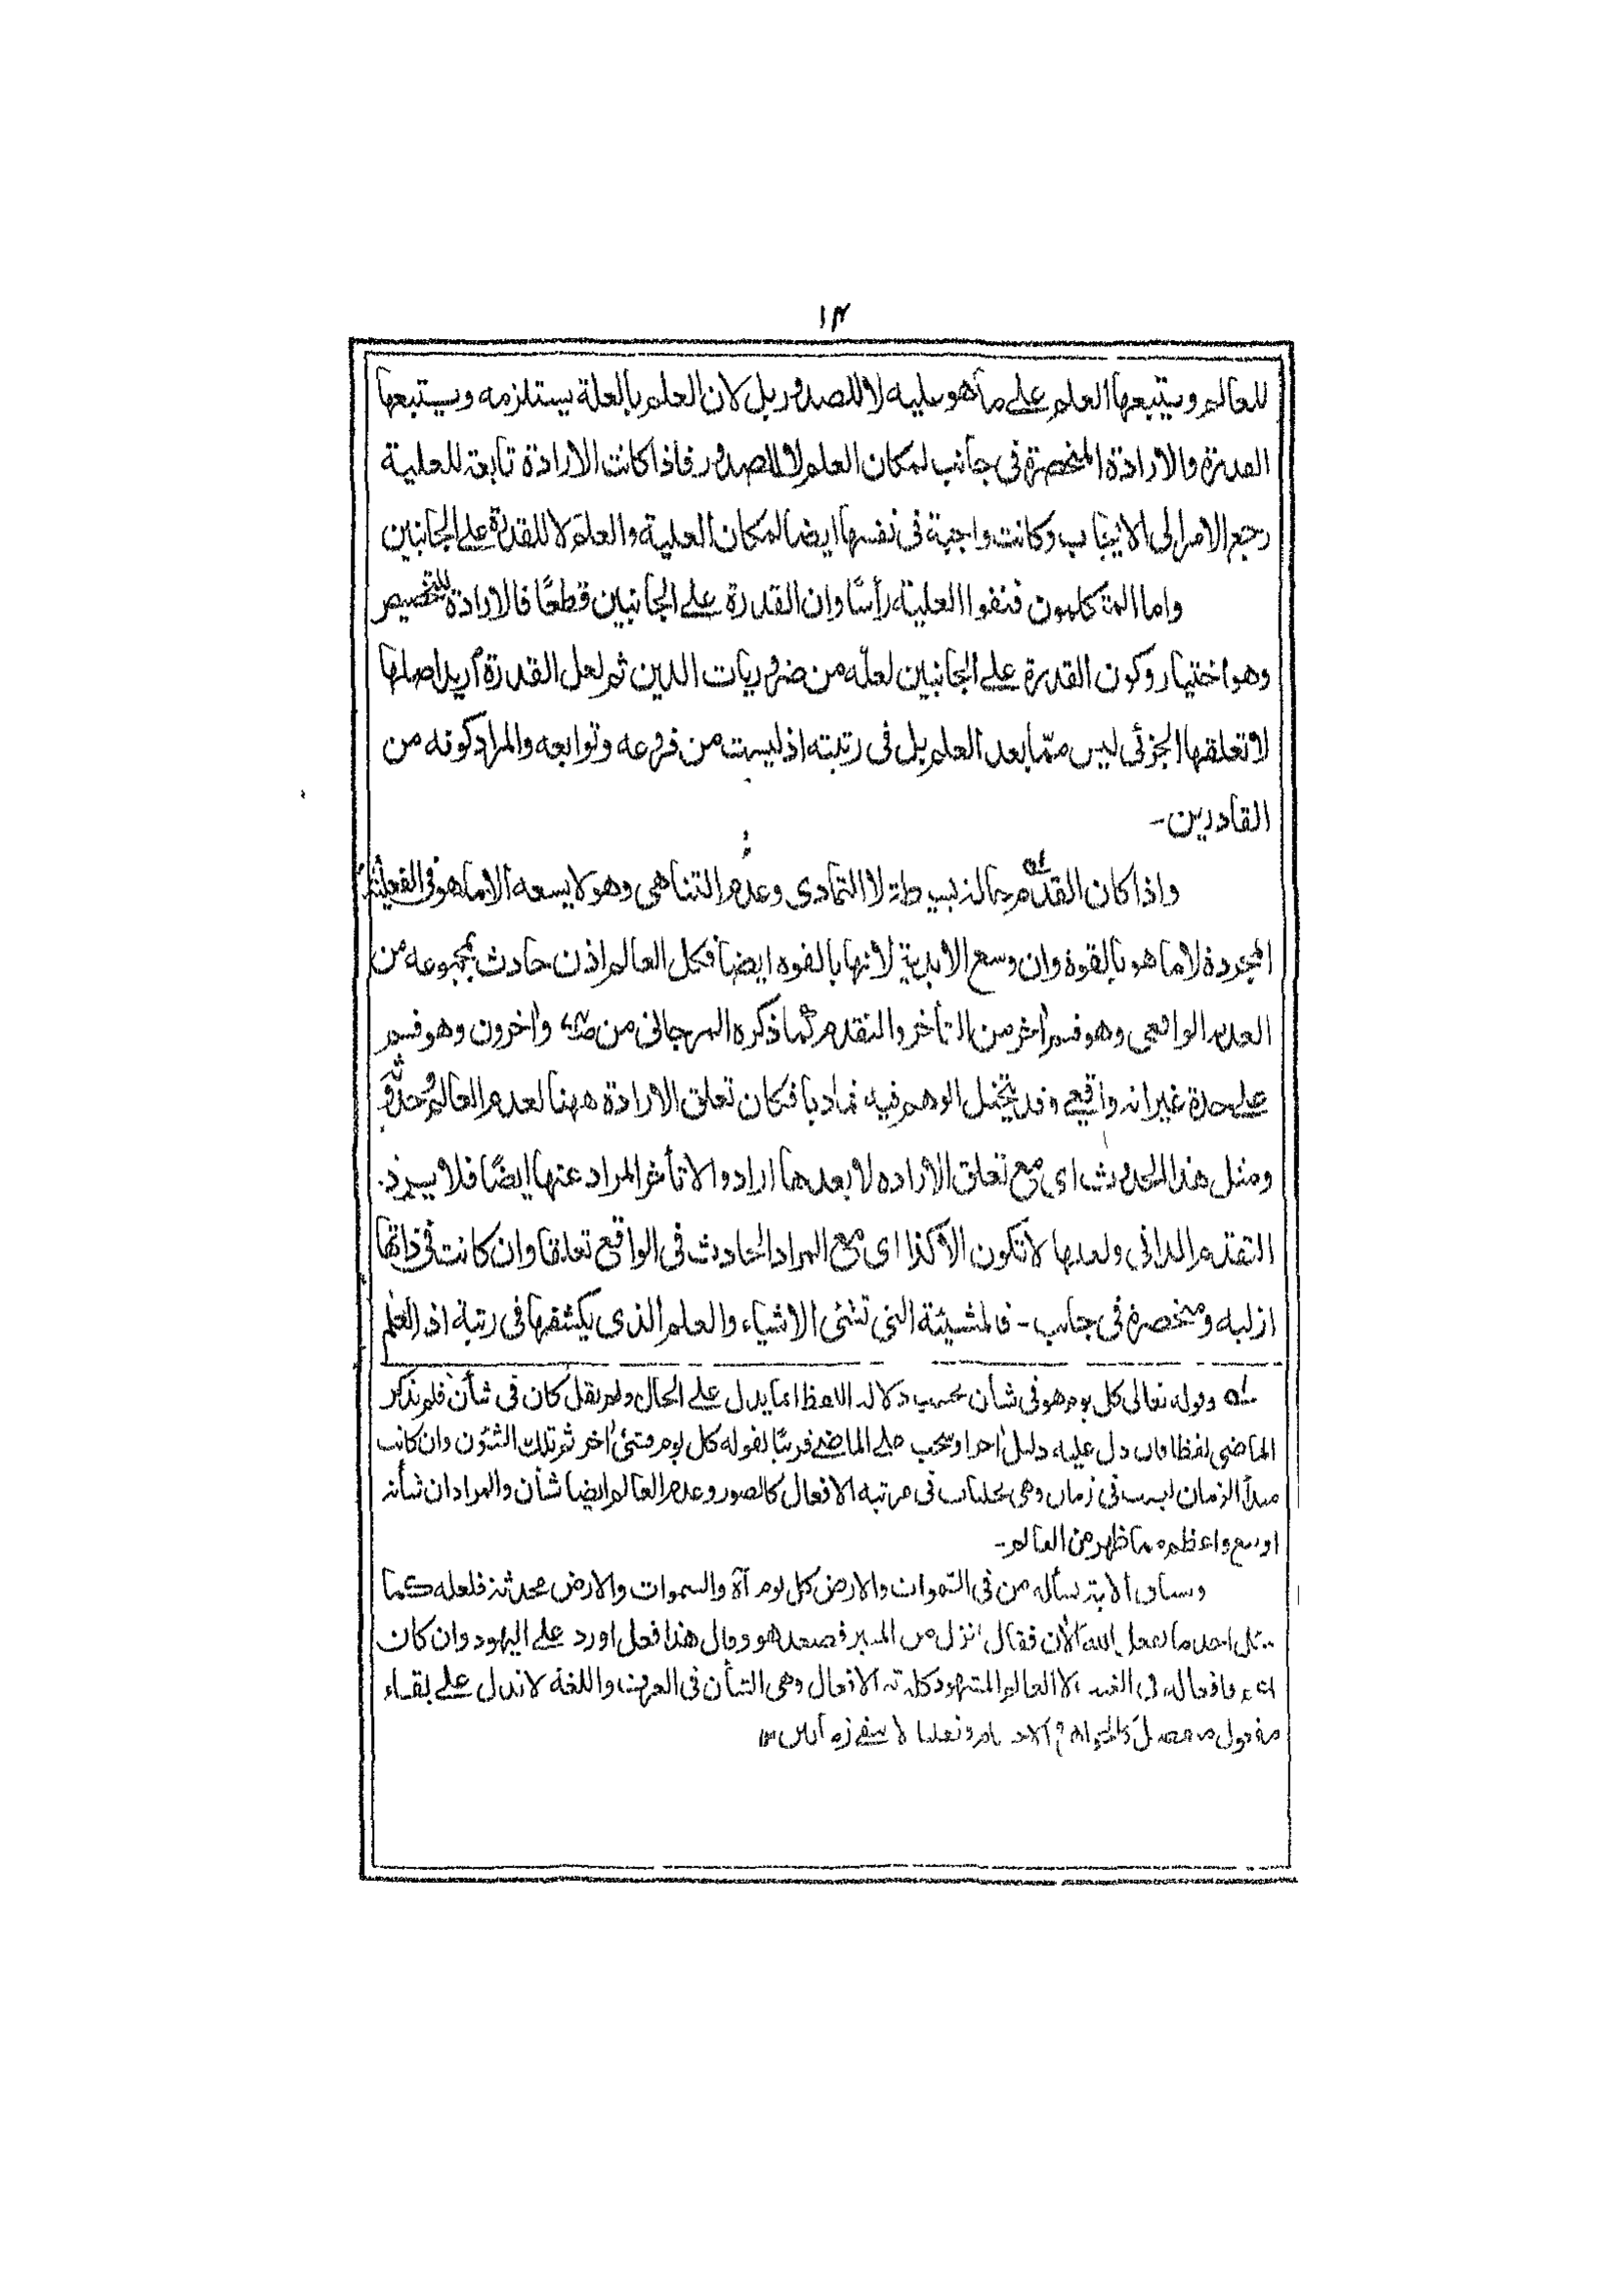 ١٣
للعالم ويتبعها العلم على ما هو عليه لا للصدور بل لان العلم بالعلة يستلزمه ويستتبعها
القدرة والارادة المنحصرة فى جانب لمكان العلم لا للصدور فاذا كانت الارادة تابعة للعلية
رجع الامر الى الايجاب وكانت واجبة فى نفسها ايضا لمكان العلية والعلم لا للقدرة على الجانبين
واما المتكلمون فنفوا العلية رأسًا وان القدرة على الجانبين قطعًا فالارادة للتخصيص
وهو اختيار وكون القدرة على الجانبين لعلّه من ضروريات الدين ثم لعل القدرة اريد اصلها
لا تعلقها الجزئى ليس ممّا بعد العلم بل فى رتبته اذ ليست من فروعه وتوابعه والمراد كونه من
القادرين-
واذا كان القدم له بساطة لا التمادى وعدم التناهى وهو لا يسعه الا ما هو فى الفعلية
المجردة لا ما هو بالقوة وان وسع الابدية لانها بالقوه ايضا فكل العالم اذن حادث بمجموعه من
العدم الواقعى وهو قسم اٰخر من التأخر والتقدم كما ذكره المرجانى من واٰخرون وهو قسم
على حدة غير انه واقعى وقد يتخيل الوهم فيه تماديا فكان تعلق الارادة ههنا لعدم العالم وحدوثه
ومثل هذا الحدوث اى مع تعلق الاراده لا بعدها اراد والا تأخر المراد عنها ايضًا فلا يبرد.
التقدم الذاتى ولعلها لا تكون الا كذا اى مع المراد الحادث فى الواقع تعلقا وان كانت فى ذاتها
ازليه ومنحصرة فى جانب - فالمشيئة التى تشئ الاشياء والعلم الذى يكشفها فى رتبة اذ العلم
له وقوله تعالى كل يوم هو فى شأن بحسب دلالة اللفظ انما يدل على الحال ولم يقل كان فى شأن فلم نذكر
الماضى لفظا فان دل عليه دليل اٰخر او سحب على الماضى قريبًا لقوله كل يوم فشئ اٰخر ثم تلك الشؤن وان كانت
مبدأ الزمان ليست فى زمان وهى تجليات فى مرتبه الافعال كالصور وعدم العالم ايضا شأن والمراد ان شأنه
اوسع واعظم مما ظهر من العالم-
وسياق الاية يسأله من فى السموات والارض كل يوم آة والسموات والارض محدثة فلعله كما
سئل احد ما يفعل الله الاٰن فقال انزل من المنبر فصعد هو وقال هذا فعل او رد على اليهود وان كان
فافعاله فى الا العالم المشهود كله الافعال وهى الشأن فى العرف واللغة لا تدل على بقاء
مفعول